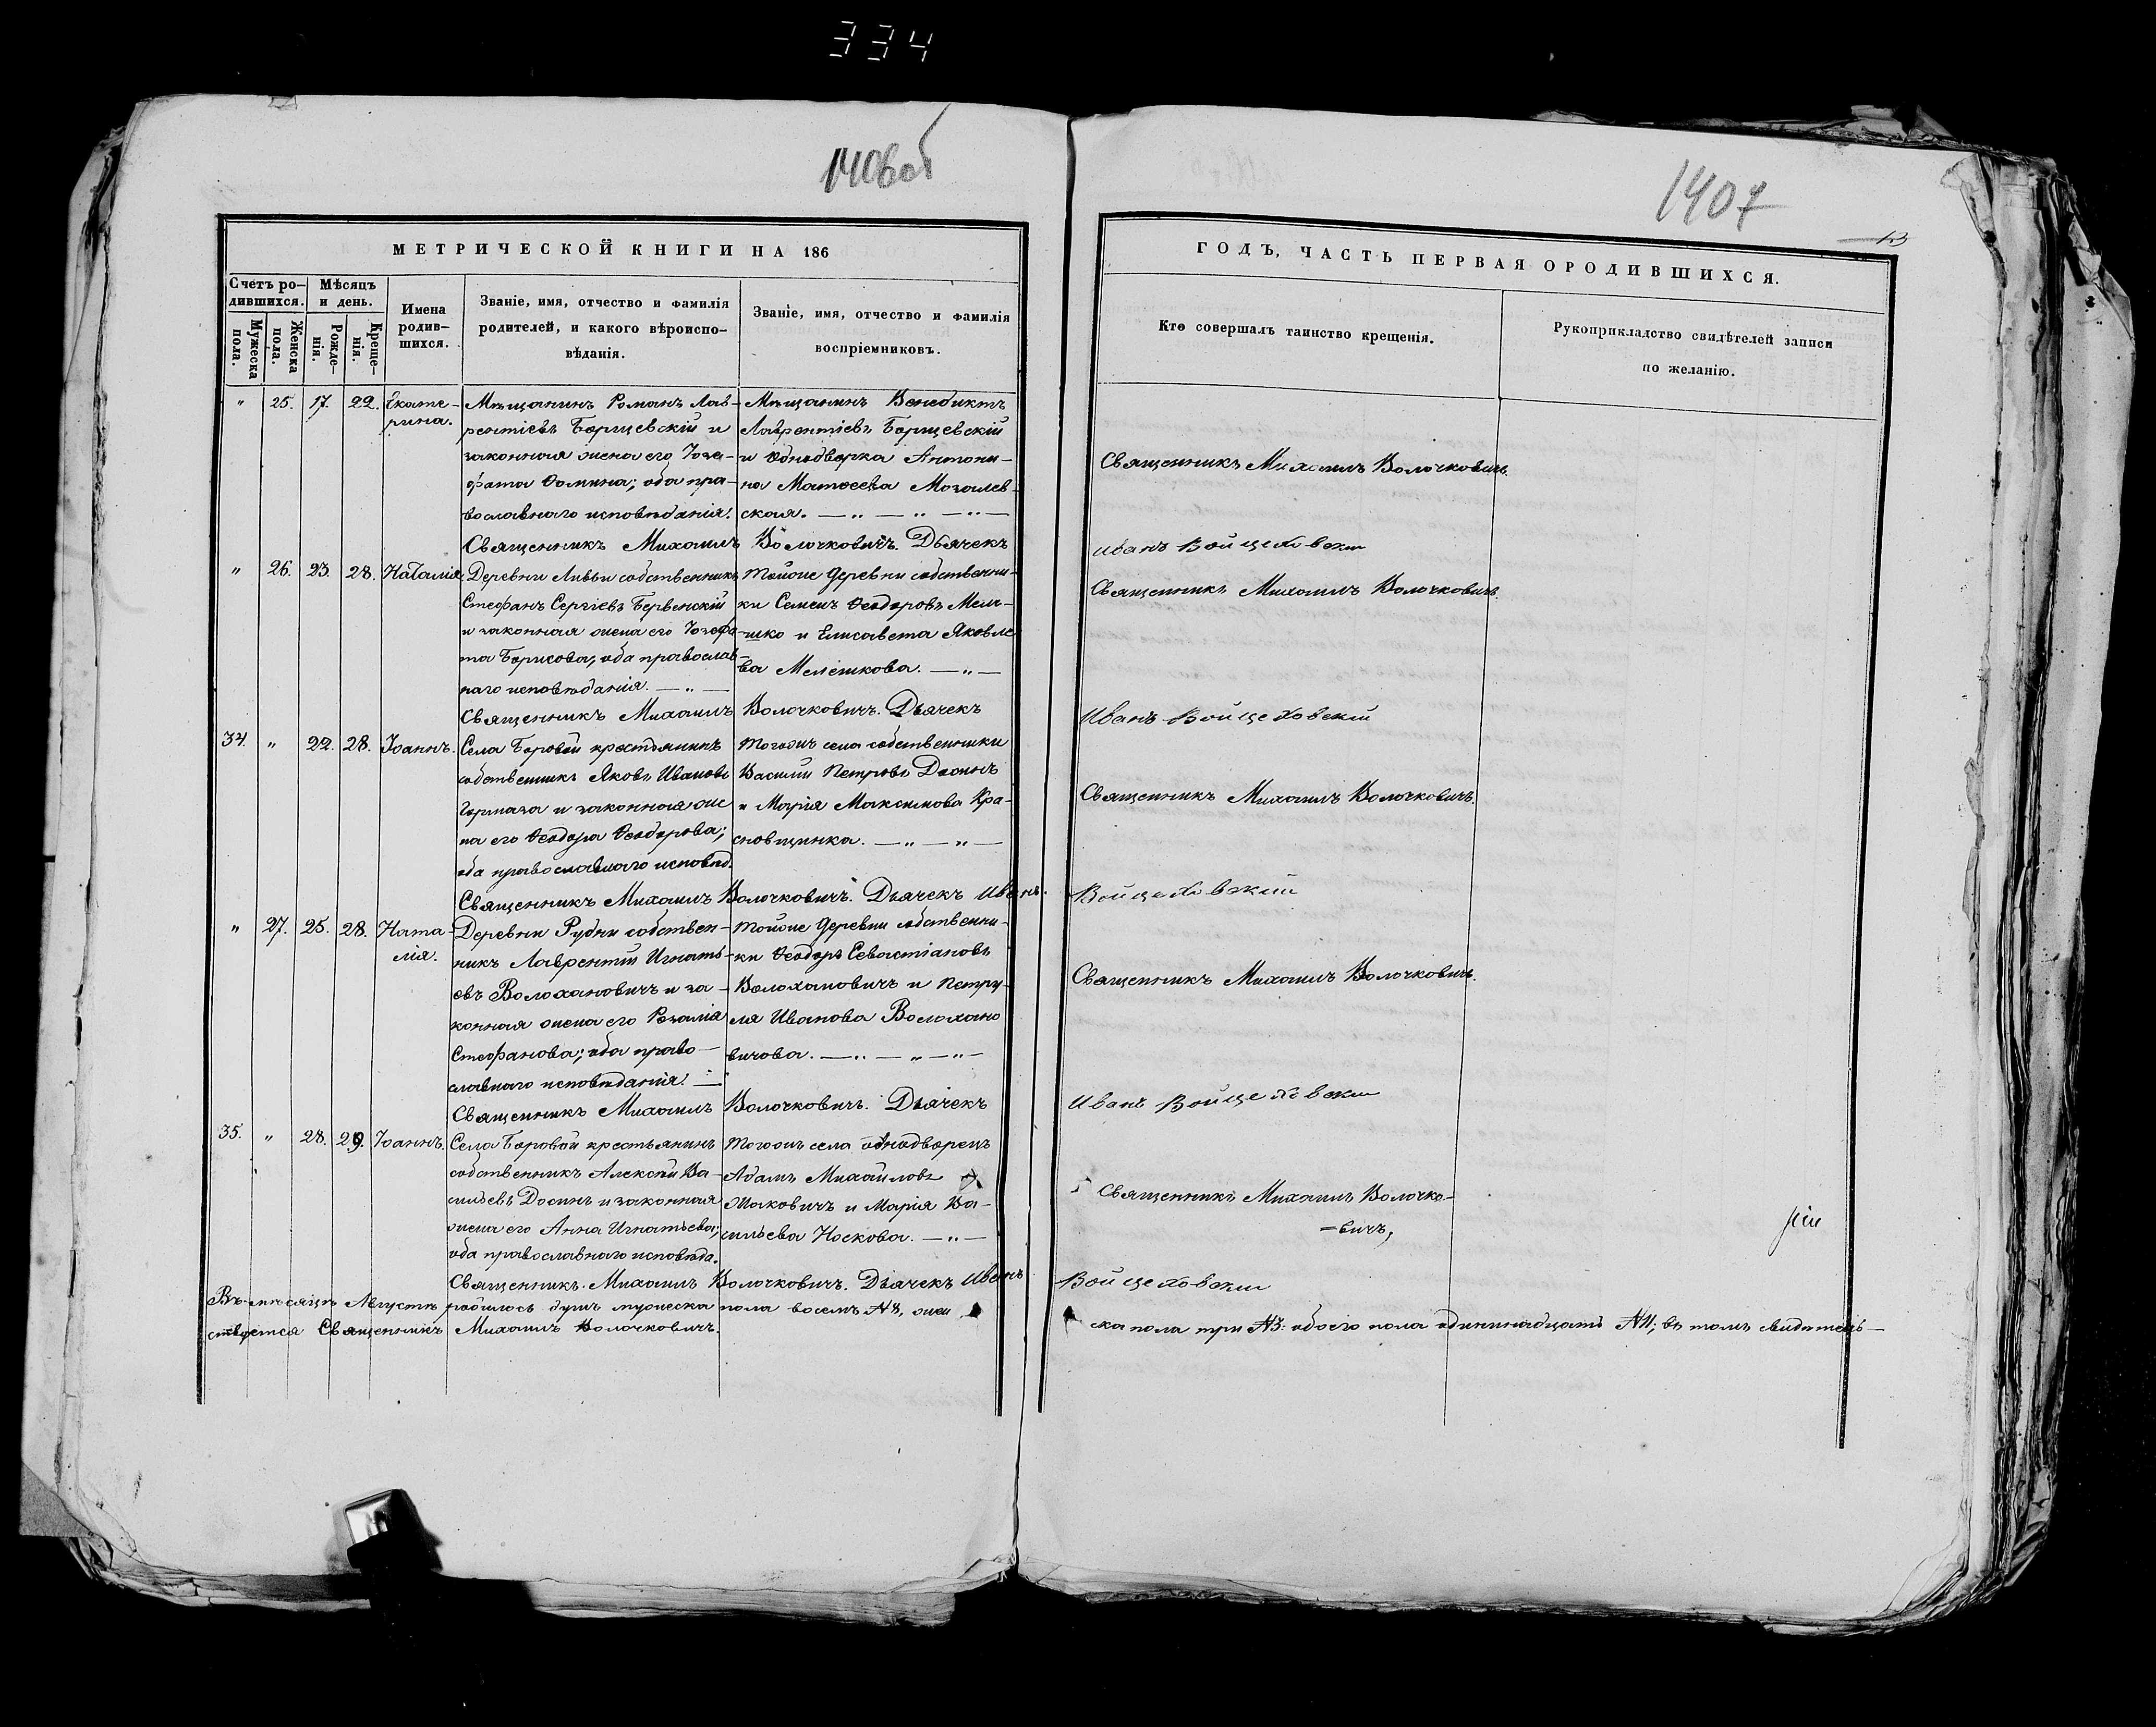 334
1406об
1407
13
МЕТРИЧЕСКОЙ КНИГИ НА 186
ГОДЪ, ЧАСТЬ ПЕРВАЯ О РОДИВШИХСЯ.
Счетъ ро-
дившихся.
Мѣсяцъ
и день.
Мужеска
пола.
Женска
пола.
Рожде-
нія.
Креще-
нія.
Имена
родив-
шихся.
Званіе, имя, отчество и фамилія
родителей, и какого вѣроиспо-
вѣданія.
Званіе, имя, отчество и фамилія
воспріемниковъ.
Кто совершалъ таинство крещенія.
Рукоприкладство свидѣтелей записи
по желанію.
" 25. 17. 22. Екате-
рина.
Мѣщанинъ Романъ Лав-
рентіевъ Борщевскій и
законная жена его Іоза-
фата Фомина; оба пра-
вославнаго исповѣданія.
Мѣщанинъ Венедиктъ
Лаврентіевъ Борщевскій
и однодворка Антони-
на Матѳеева Мозалев-
ская.
Священникъ Михаилъ Волочковичъ.
Священникъ Михаилъ Волочковичъ. Дьячекъ Иванъ Войцеховскій
" 26. 23. 28. Наталія.
Деревни Ливьи собственникъ
Стефанъ Сергіевъ Бервенскій
и законная жена его Іозефа-
та Борисова, оба православ-
наго исповѣданія.
тойже деревни собственни-
ки Семенъ Ѳеодоровъ Меле-
шко и Елисавета Яковле-
ва Мелешкова.
Священникъ Михаилъ Волочковичъ.
Священникъ Михаилъ Волочковичъ. Дьячекъ Иванъ Войцеховскій
34. " 22. 28. Іоаннъ.
Села Боровой крестьянинъ
собственникъ Яковъ Ивановъ
Гормаза и законная же
на его Ѳеодора Ѳеодорова;
оба православнаго исповѣд.
тогожъ села собственники
Василій Петровъ Досинъ
и Марія Максимова Кра-
сновщинка.
Священникъ Михаилъ Волочковичъ.
Священникъ Михаилъ Волочковичъ. Дьячекъ Иванъ Войцеховскій
" 27. 25. 28. Ната-
лія.
Деревни Рудни собствен-
никъ Лаврентій Игнать-
евъ Волохановичъ и за-
конная жена его Розалія
Стефанова; оба право-
славнаго исповѣданія.
тойже деревни собственни-
ки Ѳеодоръ Севастіановъ
Волохановичъ и Петру-
ля Иванова Волохано
вичова.
Священникъ Михаилъ Волочковичъ.
Священникъ Михаилъ Волочковичъ. Дьячекъ Иванъ Войцеховскій
35. " 28. 29. Іоаннъ.
Села Боровой крестьянинъ
собственникъ Алексѣй Ва-
сильевъ Досинъ и законная
жена его Анна Игнатьева;
оба православнаго исповѣда.
тогожъ села однодворецъ
Адамъ Михайловъ
Жаковичъ и Марія Ва-
сильева Носкова.
Священникъ Михаилъ Волочко-
-вичъ,
Священникъ Михаилъ Волочковичъ. Дьячекъ Иванъ Войцеховскій
Въ мѣсяцѣ Августѣ родилось душъ мужеска пола восемъ №8, жен
ска пола три №3: обоего пола одиннадцать №11; въ томъ свидѣтель-
ствуется Священникъ Михаилъ Волочковичъ.